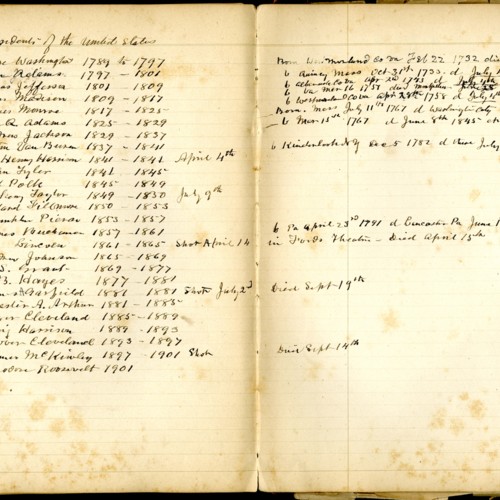 of the United States
Washington 1789 to 1797
Adams. 1797 - 1801
Jefferson 1801 - 1809
Madison 1809 - 1817
Monroe 1817 - 1825
Q Adams 1825 - 1829
Jackson 1829 - 1837
Van Buren 1837 - 1841
Henry Harrison 1841 - 1841 April 4th
Tyler 1841 - 1845
Polk 1845 - 1849
Taylor 1849 - 1850 July 9th
Fillmore 1850 - 1853
Pierce 1853 - 1857
Buchanan 1857 - 1861
Lincoln 1861 - 1865 Shot April 14
Johnson 1865 - 1869
S. Grant 1869 - 1877
B. Hayes 1877 - 1881
Garfield 1881 - 1881 Shot July 2d
A. Arthur 1881 - 1885
Cleveland 1885 - 1889
Harrison 1889 - 1893
Cleveland 1893 - 1897
McKinley 1897 - 1901 Shot
Roosevelt 1901
Born Feb 22 1732
b Mass Oct 31st 1735 d July
b Apr 2nd 1743 d July 4th
b Va Mar 16 1751 died
b Westmorland Co Va Apr 28th 1758 d July
Born. Mass July 11th 1767 d Washington City
b Mar 15th 1767 d June 8th 1845
b Kinderhook N.Y Dec 5 1782 d July
b Pa April 23rd 1791 d Lancaster Pa June 1
in Fords Theatre - Died April 15th
Died Sept 19th
Died Sept 14th